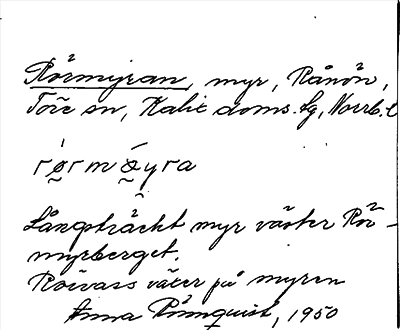 Rörmyran, myr, Rånön,
Töre sn, Kalix doms.fg, Norrb. l
rørmæyra
Långsträckt myr väster Rör-
myrberget.
Rörvass växer på myren
Anna Rönnquist, 1950